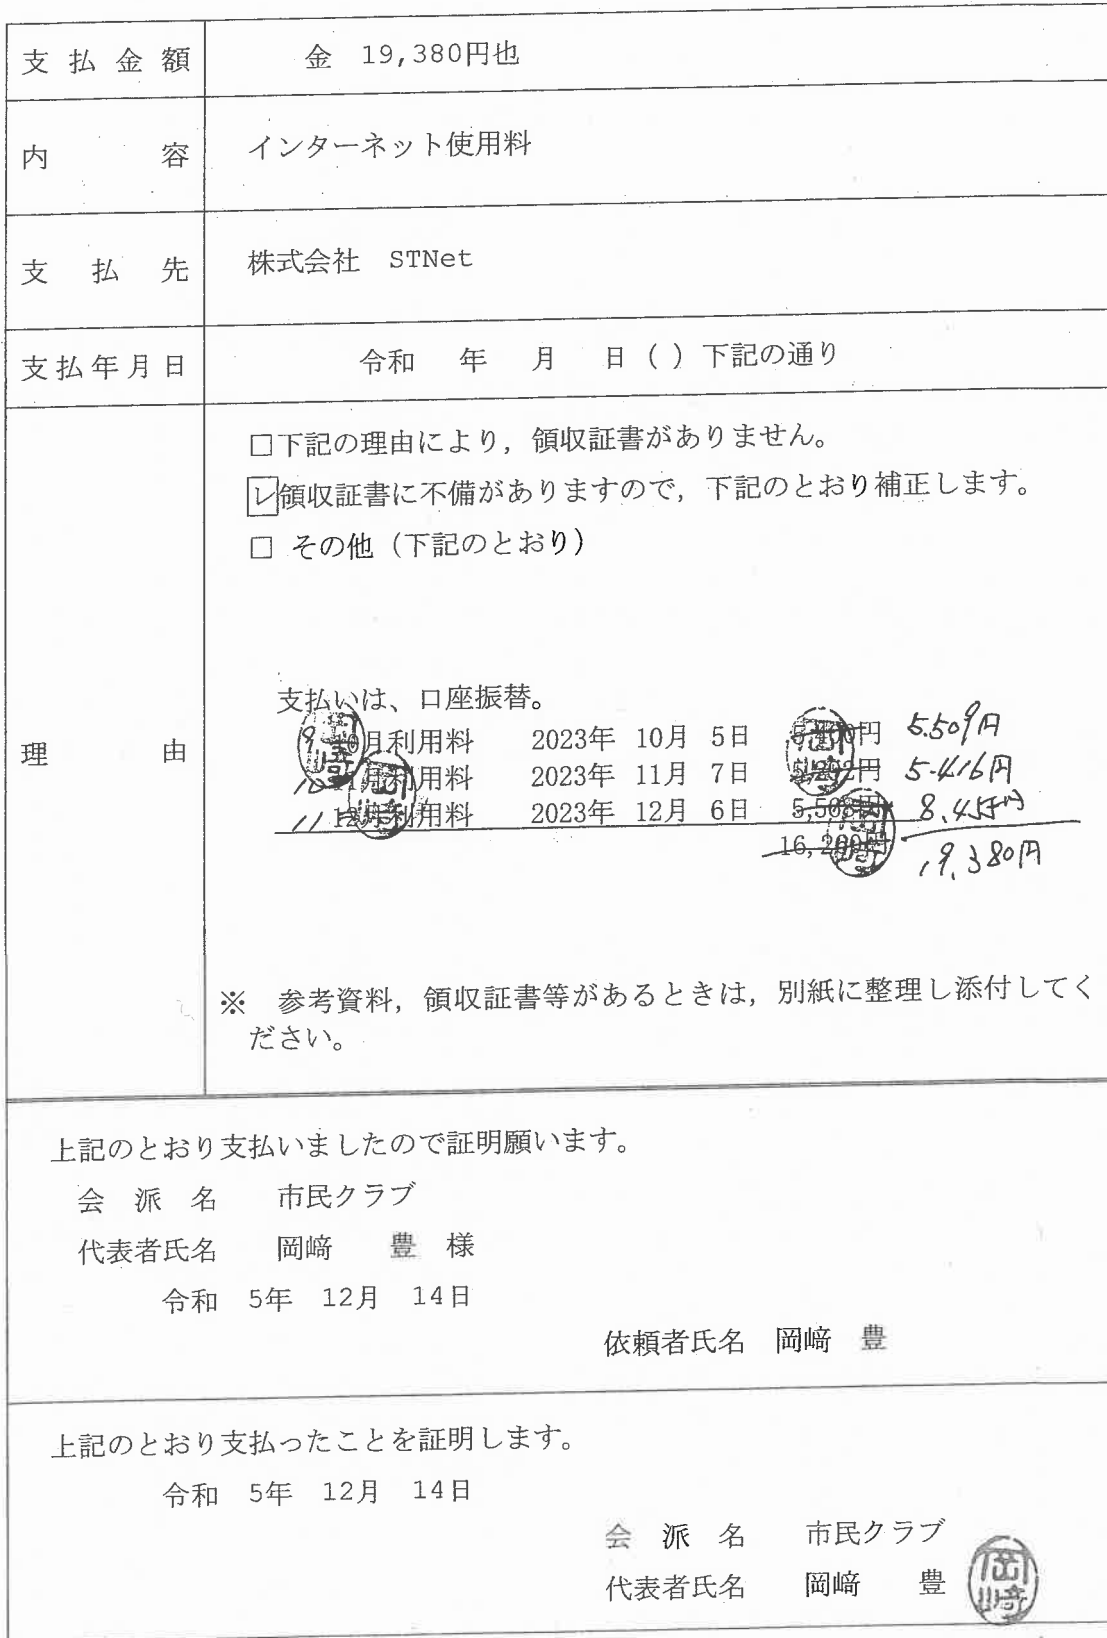 支払金額 金 19,380円也
内容 インターネット使用料
支払先 株式会社 STNet
支払年月日 令和 年 月 日 ( ) 下記の通り
理由
□下記の理由により，領収証書がありません。
☑領収証書に不備がありますので，下記のとおり補正します。
□ その他（下記のとおり）
支払いは、口座振替。
9 月利用料 2023年 10月 5日 円 5.509円
10 11月利用料 2023年 11月 7日 円 5.416円
11 12月利用料 2023年 12月 6日 5,508円 8.455円
16,200円 19.380円
※ 参考資料，領収証書等があるときは，別紙に整理し添付してく
ださい。
上記のとおり支払いましたので証明願います。
会派名 市民クラブ
代表者氏名 岡﨑 豊 様
令和 5年 12月 14日
依頼者氏名 岡﨑 豊
上記のとおり支払ったことを証明します。
令和 5年 12月 14日
会派名 市民クラブ
代表者氏名 岡﨑 豊 岡﨑